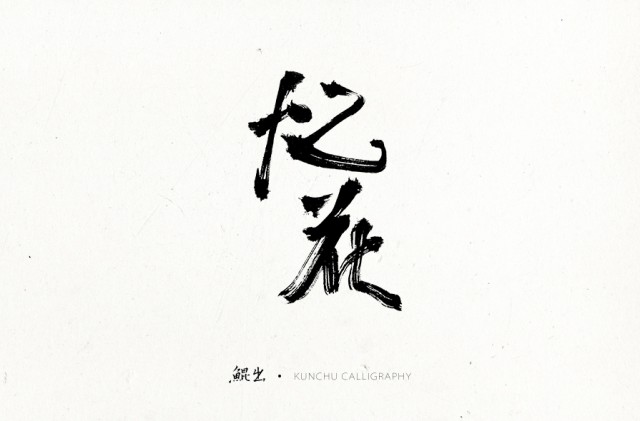 忆
花
鲲出 • KUNCHU CALLIGRAPHY